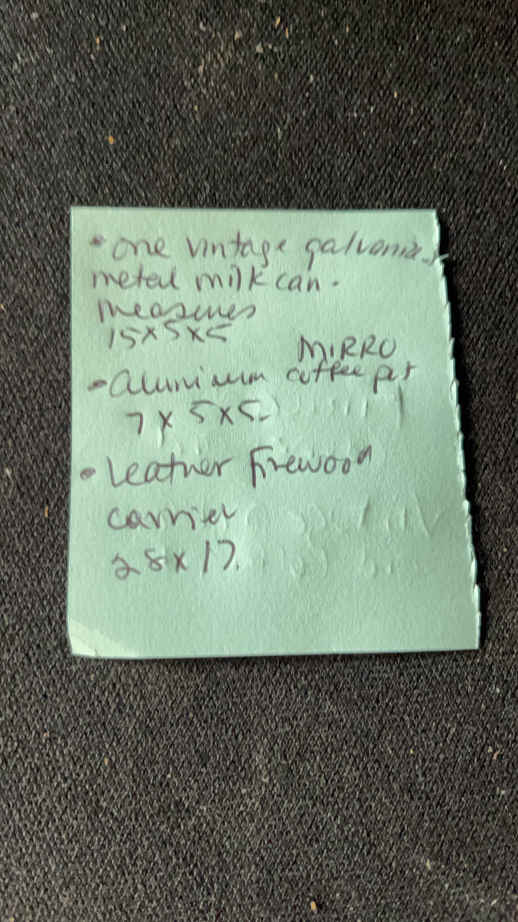 • one vintage galvanized
metal milk can.
measures
15x5x5
MIRRO
• aluminum coffee pot
7 x 5x5
• Leather firewood
carrier
28x17.